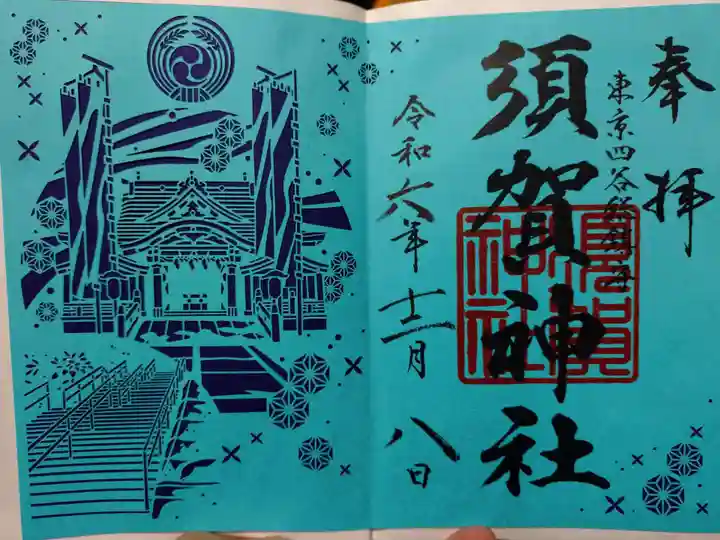 奉拝
東京四谷総鎮守
須賀神社
須賀
神社
令和六年十二月八日